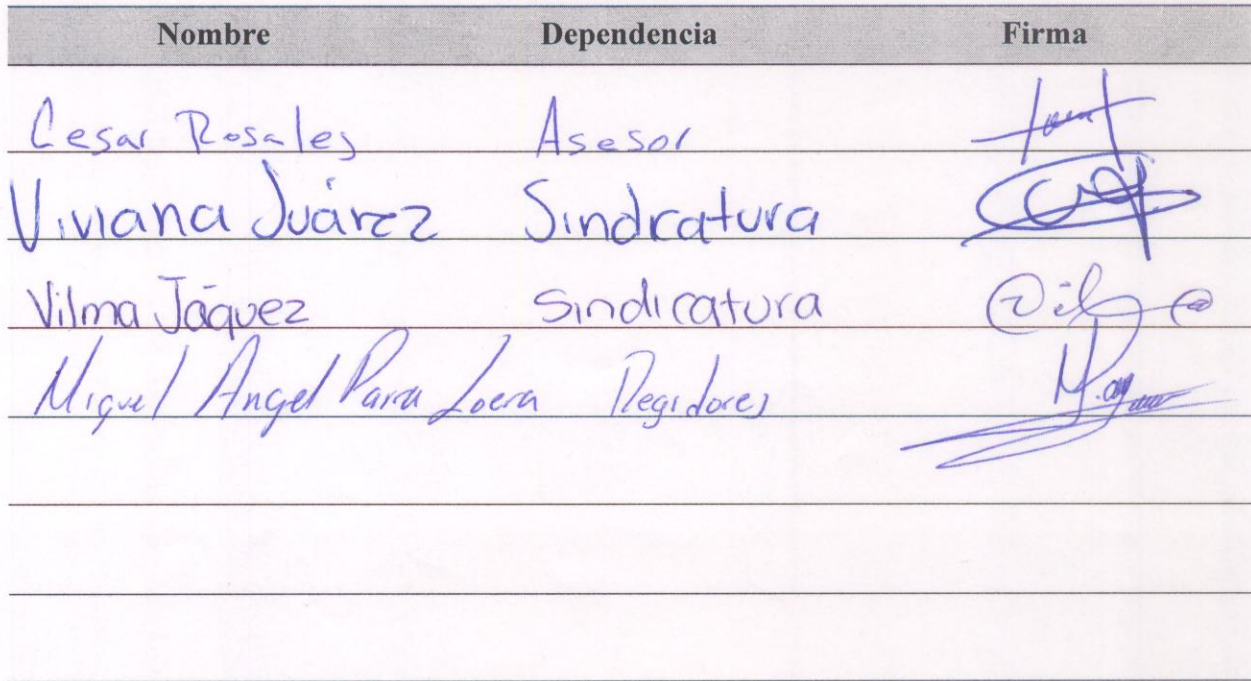 Nombre Dependencia Firma
Cesar Rosales Asesor
Viviana Juárez Sindicatura
Vilma Jáquez Sindicatura
Miguel Angel Parra Loera Regidores